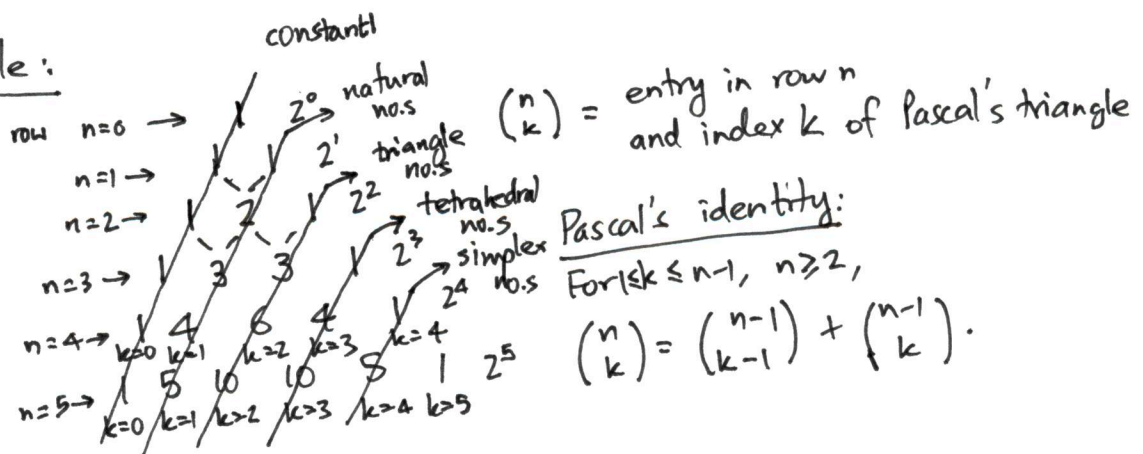 le:
constant 1
row n=0 → 1 2⁰ natural no.s
n=1 → 1 1 2¹ triangle no.s
n=2 → 1 2 1 2² tetrahedral no.s
n=3 → 1 3 3 1 2³ simplex no.s
n=4 → 1 4 6 4 1 2⁴
k=0 k=1 k=2 k=3 k=4
n=5 → 1 5 10 10 5 1 2⁵
k=0 k=1 k=2 k=3 k=4 k=5
(n k) = entry in row n
and index k of Pascal's triangle
Pascal's identity:
For 1≤k≤n-1, n≥2,
(n k) = (n-1 k-1) + (n-1 k).